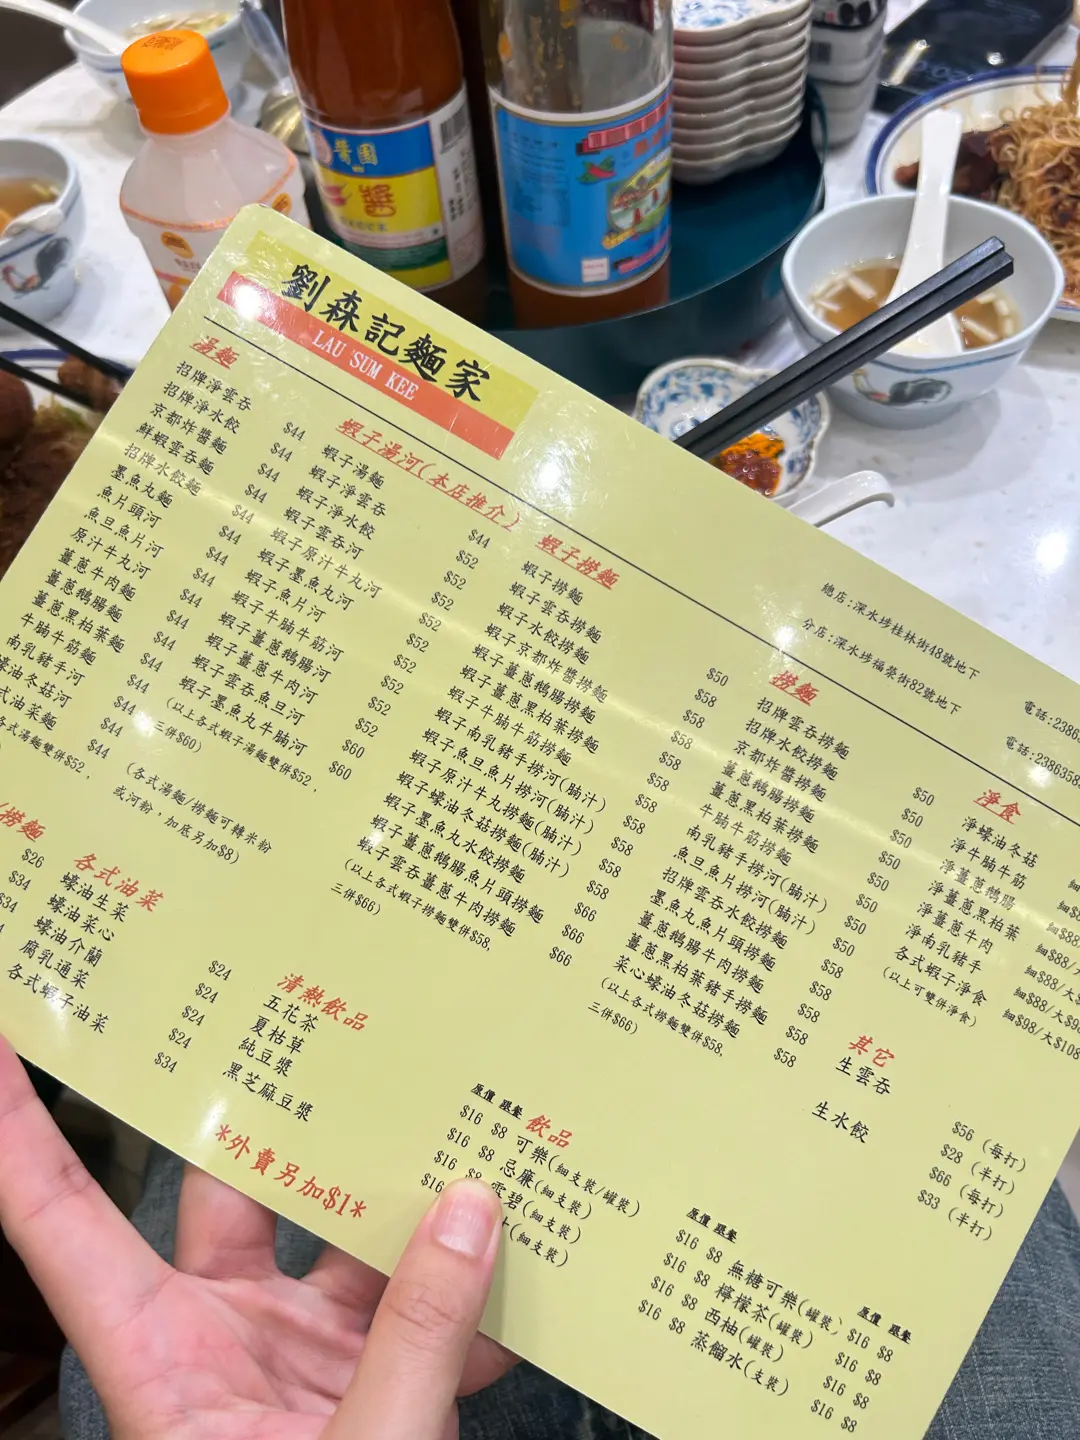 劉森記麵家
LAU SUM KEE
總店:深水埗桂林街48號地下
分店:深水埗福榮街82號地下
電話:2386
電話:2386358
湯麵
招牌淨雲吞 $44
招牌淨水餃 $44
京都炸醬麵 $44
鮮蝦雲吞麵 $44
招牌水餃麵 $44
墨魚丸麵 $44
魚片頭河 $44
魚旦魚片河 $44
原汁牛丸河 $44
薑蔥牛肉麵 $44
薑蔥鵝腸麵 $44
薑蔥黑柏葉麵 $44
牛腩牛筋麵 $44
南乳豬手河 $44
油冬菇河
式油菜麵
各式湯麵雙併$52,
(各式湯麵/撈麵可轉米粉
或河粉,加底另加$8)
蝦子湯河(本店推介)
蝦子湯麵 $44
蝦子淨雲吞 $52
蝦子淨水餃 $52
蝦子雲吞河 $52
蝦子原汁牛丸河 $52
蝦子墨魚丸河 $52
蝦子魚片河 $52
蝦子牛腩牛筋河 $52
蝦子薑蔥鵝腸河 $52
蝦子薑蔥牛肉河
蝦子雲吞魚旦河 $60
蝦子墨魚丸牛腩河 $60
(以上各式蝦子湯麵雙併$52,
三併$60)
蝦子撈麵
蝦子撈麵 $50
蝦子雲吞撈麵 $58
蝦子水餃撈麵 $58
蝦子京都炸醬撈麵 $58
蝦子薑蔥鵝腸撈麵 $58
蝦子薑蔥黑柏葉撈麵 $58
蝦子牛腩牛筋撈麵 $58
蝦子南乳豬手撈河(腩汁) $58
蝦子魚旦魚片撈河(腩汁) $58
蝦子原汁牛丸撈麵(腩汁) $58
蝦子蠔油冬菇撈麵(腩汁)
蝦子墨魚丸水餃撈麵 $66
蝦子薑蔥鵝腸魚片頭撈麵 $66
蝦子雲吞薑蔥牛肉撈麵 $66
(以上各式蝦子撈麵雙併$58,
三併$66)
撈麵
招牌雲吞撈麵 $50
招牌水餃撈麵 $50
京都炸醬撈麵 $50
薑蔥鵝腸撈麵 $50
薑蔥黑柏葉撈麵 $50
牛腩牛筋撈麵 $50
南乳豬手撈河(腩汁) $50
魚旦魚片撈河(腩汁) $50
招牌雲吞水餃撈麵 $58
墨魚丸魚片頭撈麵 $58
薑蔥鵝腸牛肉撈麵 $58
薑蔥黑柏葉豬手撈麵 $58
菜心蠔油冬菇撈麵 $58
(以上各式撈麵雙併$58,
三併$66)
淨食
淨蠔油冬菇
淨牛腩牛筋
淨薑蔥鵝腸
淨薑蔥黑柏葉 細$88/
淨薑蔥牛肉 細$88/大$
淨南乳豬手 細$88/大$
各式蝦子淨食 細$98/大$108
(以上可雙併淨食)
其它
生雲吞 $56 (每打)
$28 (半打)
生水餃 $66 (每打)
$33 (半打)
撈麵
$26
$34
$34
各式油菜
蠔油生菜 $24
蠔油菜心 $24
蠔油介蘭 $24
腐乳通菜 $24
各式蝦子油菜 $34
清熱飲品
五花茶
夏枯草
純豆漿
黑芝麻豆漿
原價 跟餐
$16 $8
$16 $8
$16 $8
$16
*外賣另加$1*
飲品
可樂(細支裝/罐裝)
忌廉(細支裝)
雲碧(細支裝)
(細支裝)
原價 跟餐
$16 $8
$16 $8
$16 $8
$16 $8
無糖可樂(罐裝)
檸檬茶(罐裝)
西柚(罐裝)
蒸餾水(支裝)
原價 跟餐
$16 $8
$16 $8
$16 $8
$16 $8